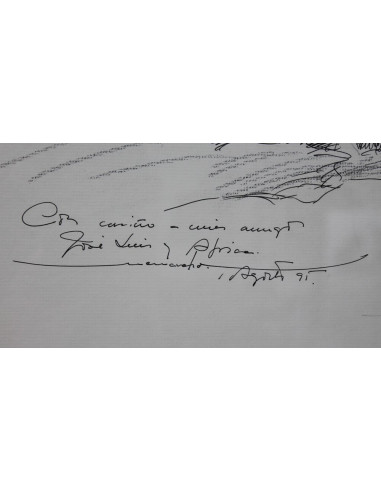 Con cariño a mis amigos
José Luis y Africa.
1 Agosto 95.